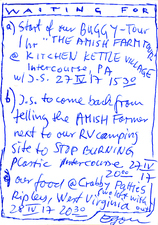 WAITING FOR
a) Start of our BUGGY-Tour
1 hr "THE AMISH FARM TOUR"
@ KITCHEN KETTLE VILLAGE
Intercourse, PA
w/J.S. 27 IV 17 15³⁰
b) J.S. to come back from
telling the AMISH Farmer
next to our RV camping
site to STOP BURNING
plastic Intercourse 27 IV
20⁰⁰ 17
c) our food @ Crabby Patties
Ripley, West Virginia
28 IV 17 20³⁰